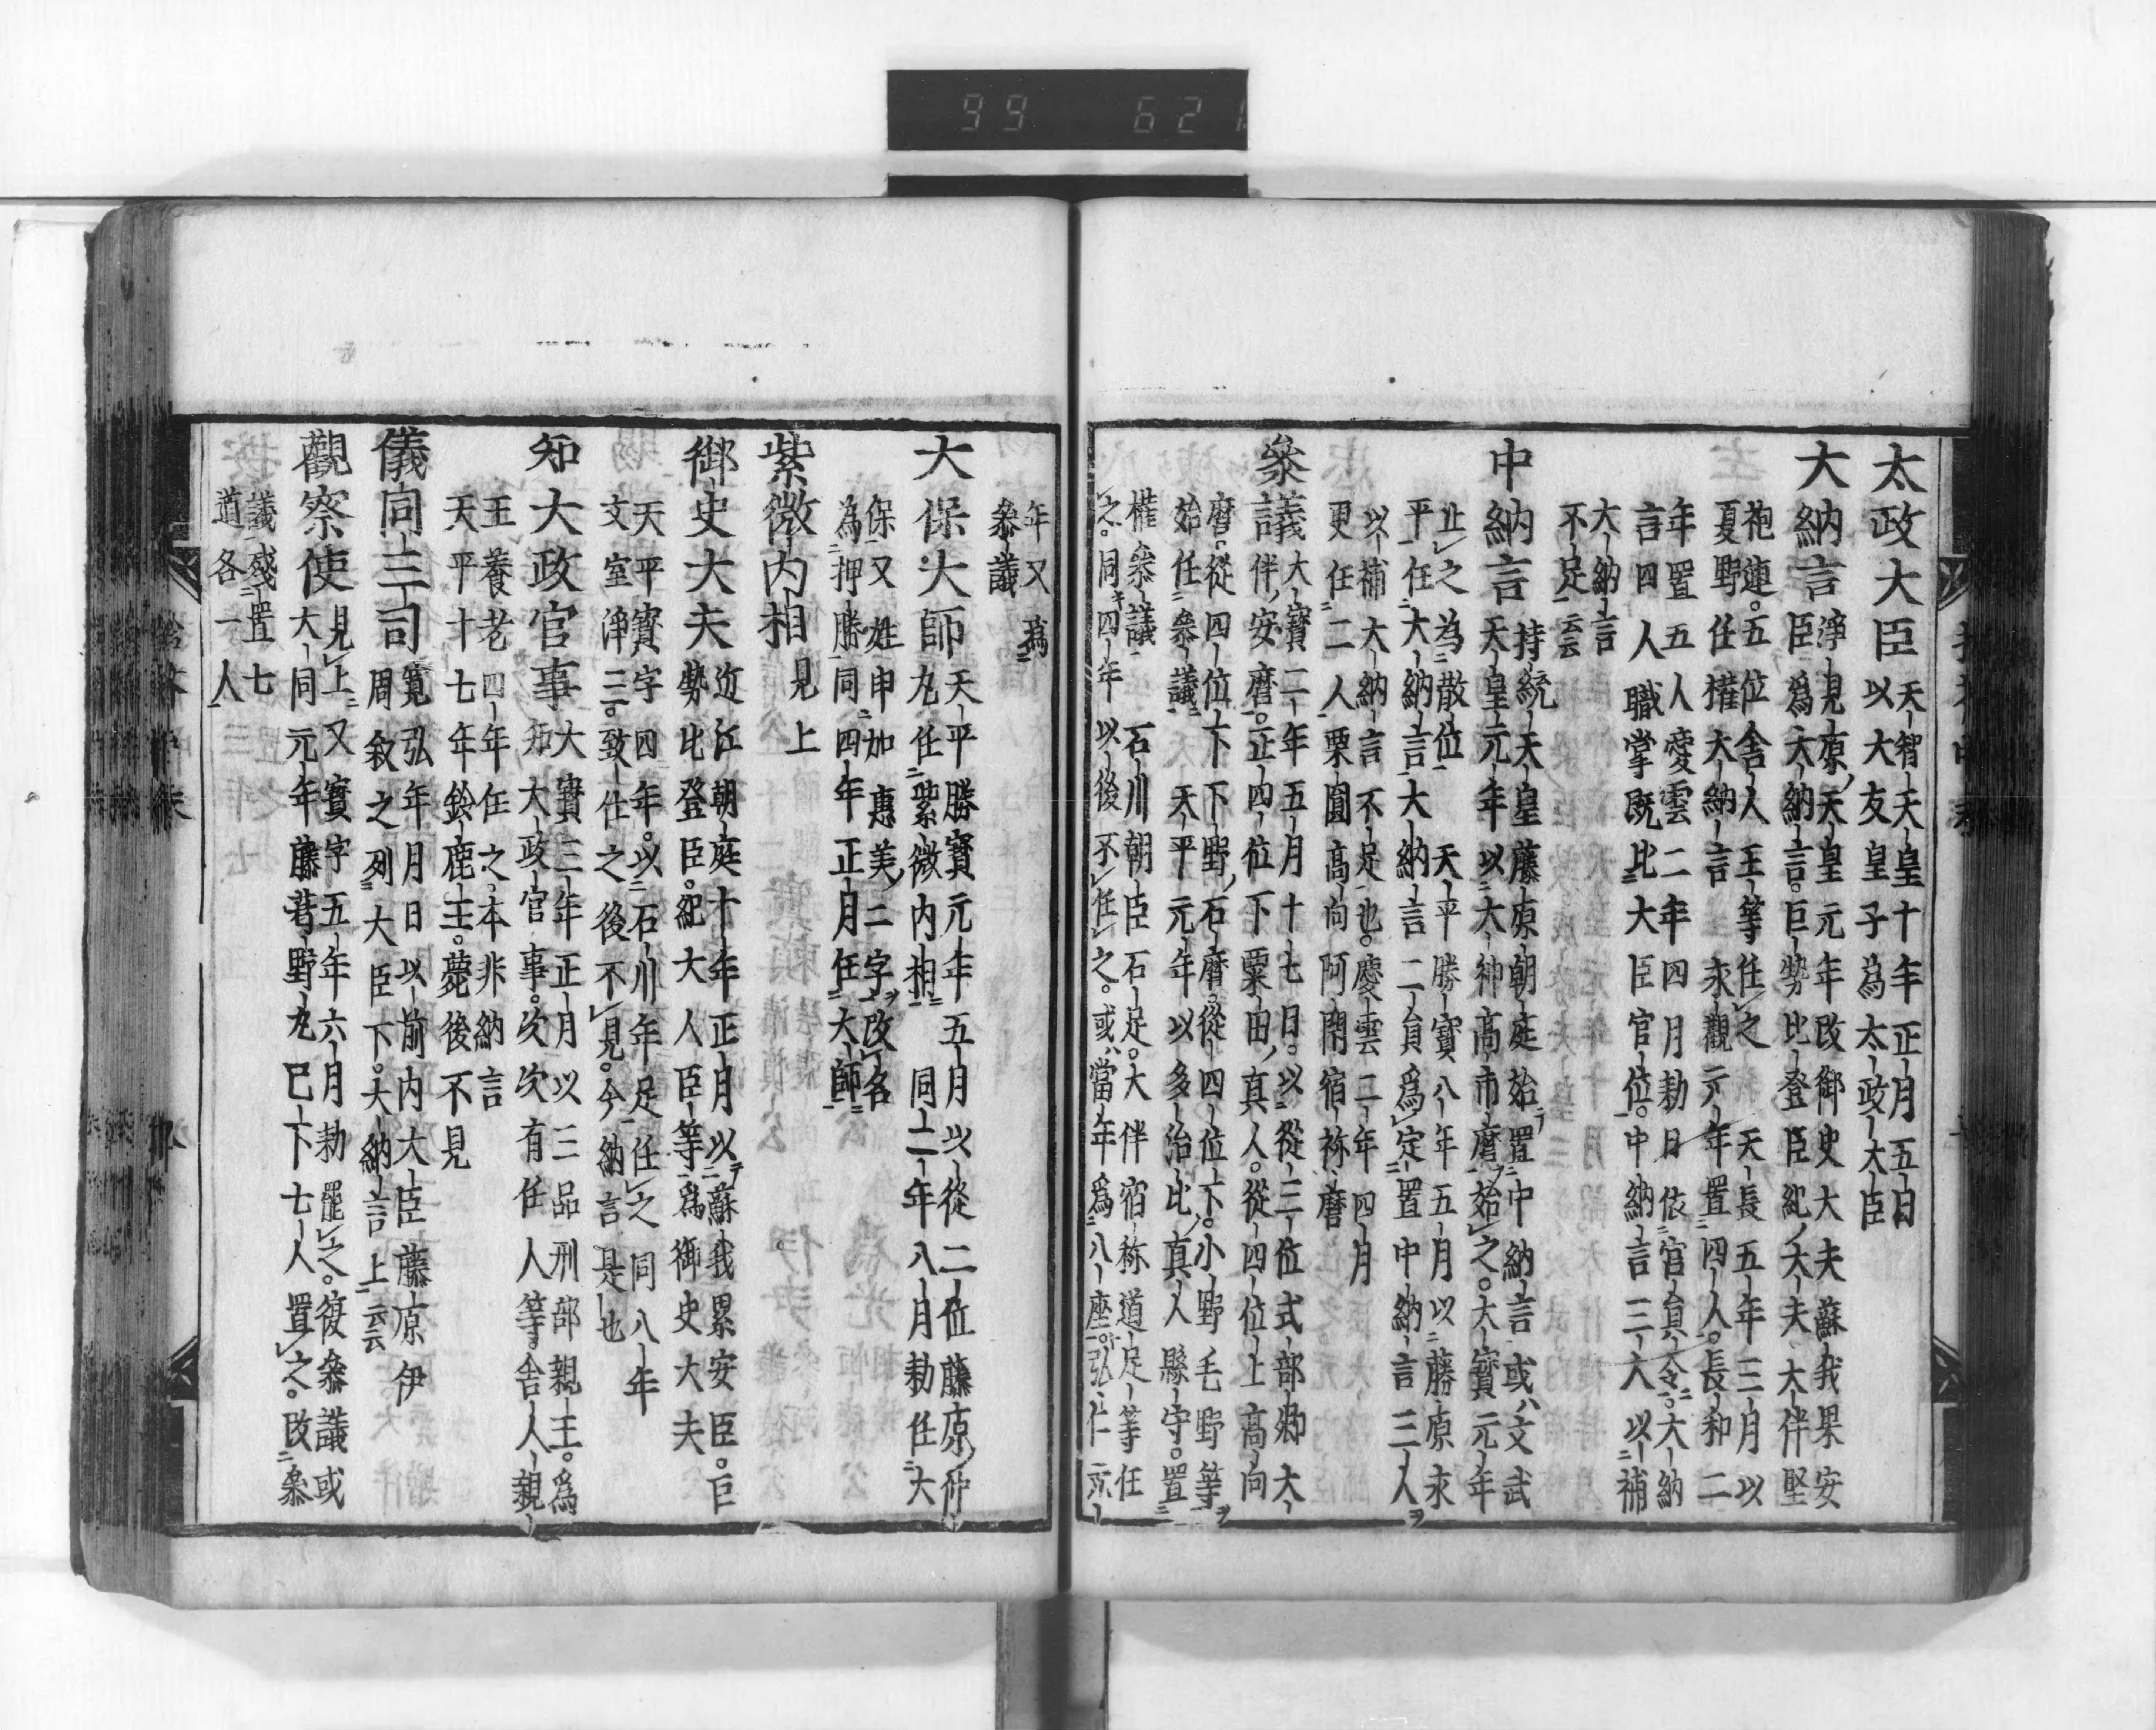 太政大臣 天智天皇十年正月五日
以大友皇子為太政大臣
大納言 淨見原天皇元年改御史大夫蘇我果安
臣爲大納言巨勢比登臣紀大夫大伴堅
夏野任權大納言
年置五人慶雲二年四月勅日依官員令大納
言四人職掌既比大臣官位中納言三人以補
大納言
不足云云
中納言 持統天皇藤原朝庭始置中納言或ハ文武
天皇元年以大神高市麿始之大寶元年
止之為散位 天平勝寶八年五月以藤原永
平任大納言大納言二員爲定置中納言三人ヲ
以補大納言不足也慶雲二年四月
更任二人粟圓高向阿閇宿祢麿
參議 大寶二年五月十七日以從三位式部卿大
伴安麿正四位下粟田真人從四位上高向
麿從四位下下野石麿從四位下小野毛野等ヲ
始任參議 天平元年以多治比真人縣守置
權參議 石川朝臣石足大伴宿祢道足等任
之同四年以後不任之或ハ當年爲八座弘仁
年又為
參議
大保大師 天平勝寶元年五月以從二位藤原仲
九任紫微内相 同二年八月勅任大
保又姓申加惠美二字ヲ改名
為押勝同四年正月任大師
紫微内相 見上
御史大夫 近江朝庭十年正月以蘇我累安臣巨
勢比登臣紀大人臣等爲御史大夫
天平寶字四年以石川年足任之同八年
文室淨三致仕之後不見今納言是也
知大政官事 大寶三年正月以三品刑部親王爲
知大政官事次次有任人等舎人親
王養老四年任之本非納言
天平十七年鈴鹿王薨後不見
儀同三司 寛弘年月日以前内大臣藤原伊
周敘之列大臣下大納言上云云
觀察使 見上又寶字五年六月勅罷之復參議或
大同元年藤葛野九已下七人置之改參
議殘置七
道各一人